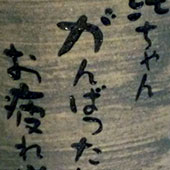 ちゃん
がんばった
お疲れ